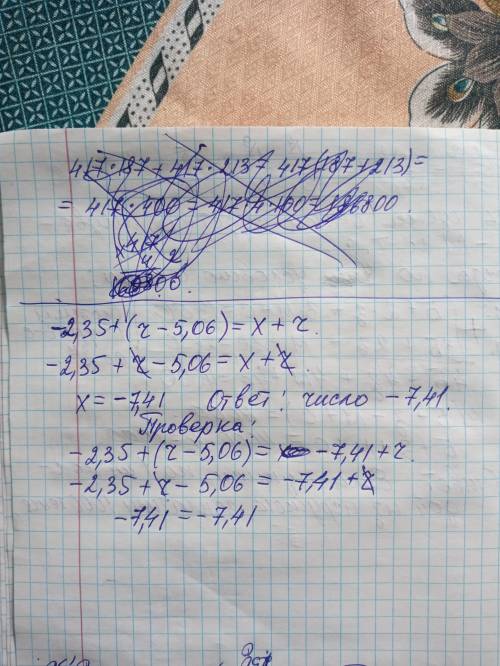 417·187+417·213=417(187+213)=
=417·400=417·4·100=166800.
×417
4
-2,35+(r-5,06)=x+r.
-2,35+r-5,06=x+r.
x=-7,41 Ответ: число -7,41.
Проверка:
-2,35+(r-5,06)= -7,41+r
-2,35+r-5,06=-7,41+r
-7,41=-7,41